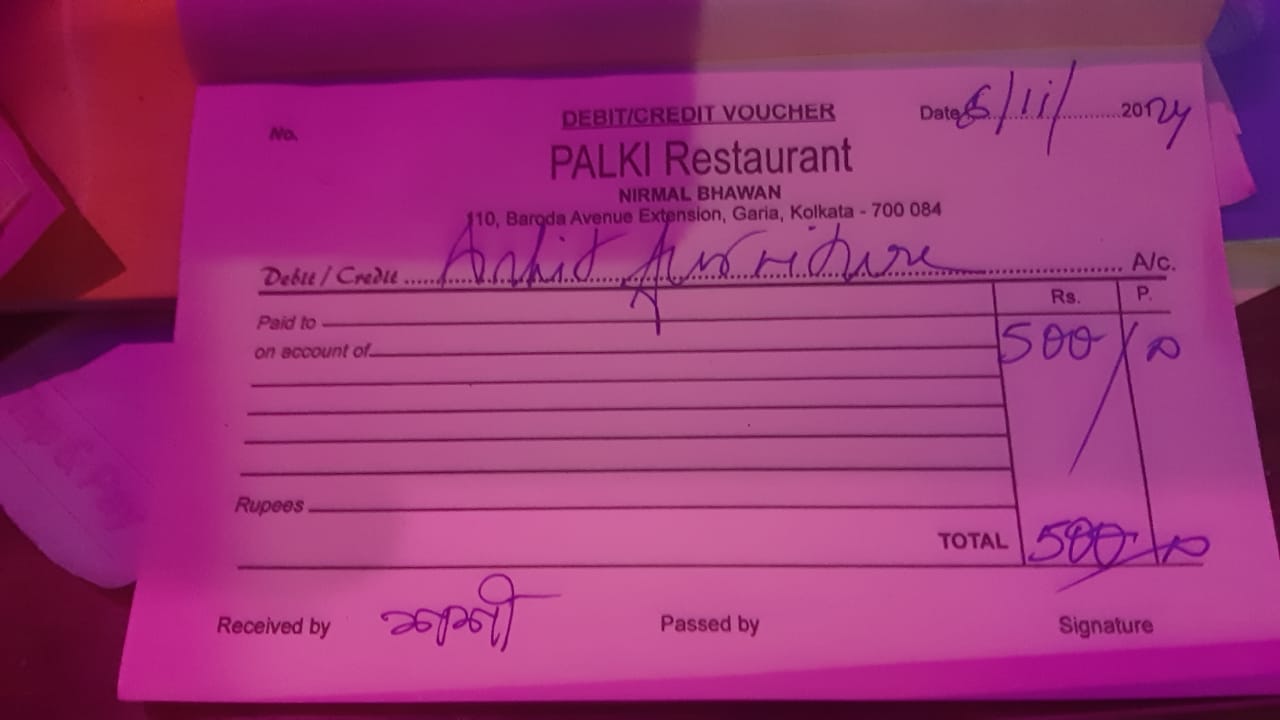 No. DEBIT/CREDIT VOUCHER Date 6/11/ 2024
PALKI Restaurant
NIRMAL BHAWAN
110, Baroda Avenue Extension, Garia, Kolkata - 700 084
Debit / Credit Ankit furniture A/c.
Rs. P.
Paid to
on account of 500/00
Rupees
TOTAL 500/00
Received by Passed by Signature